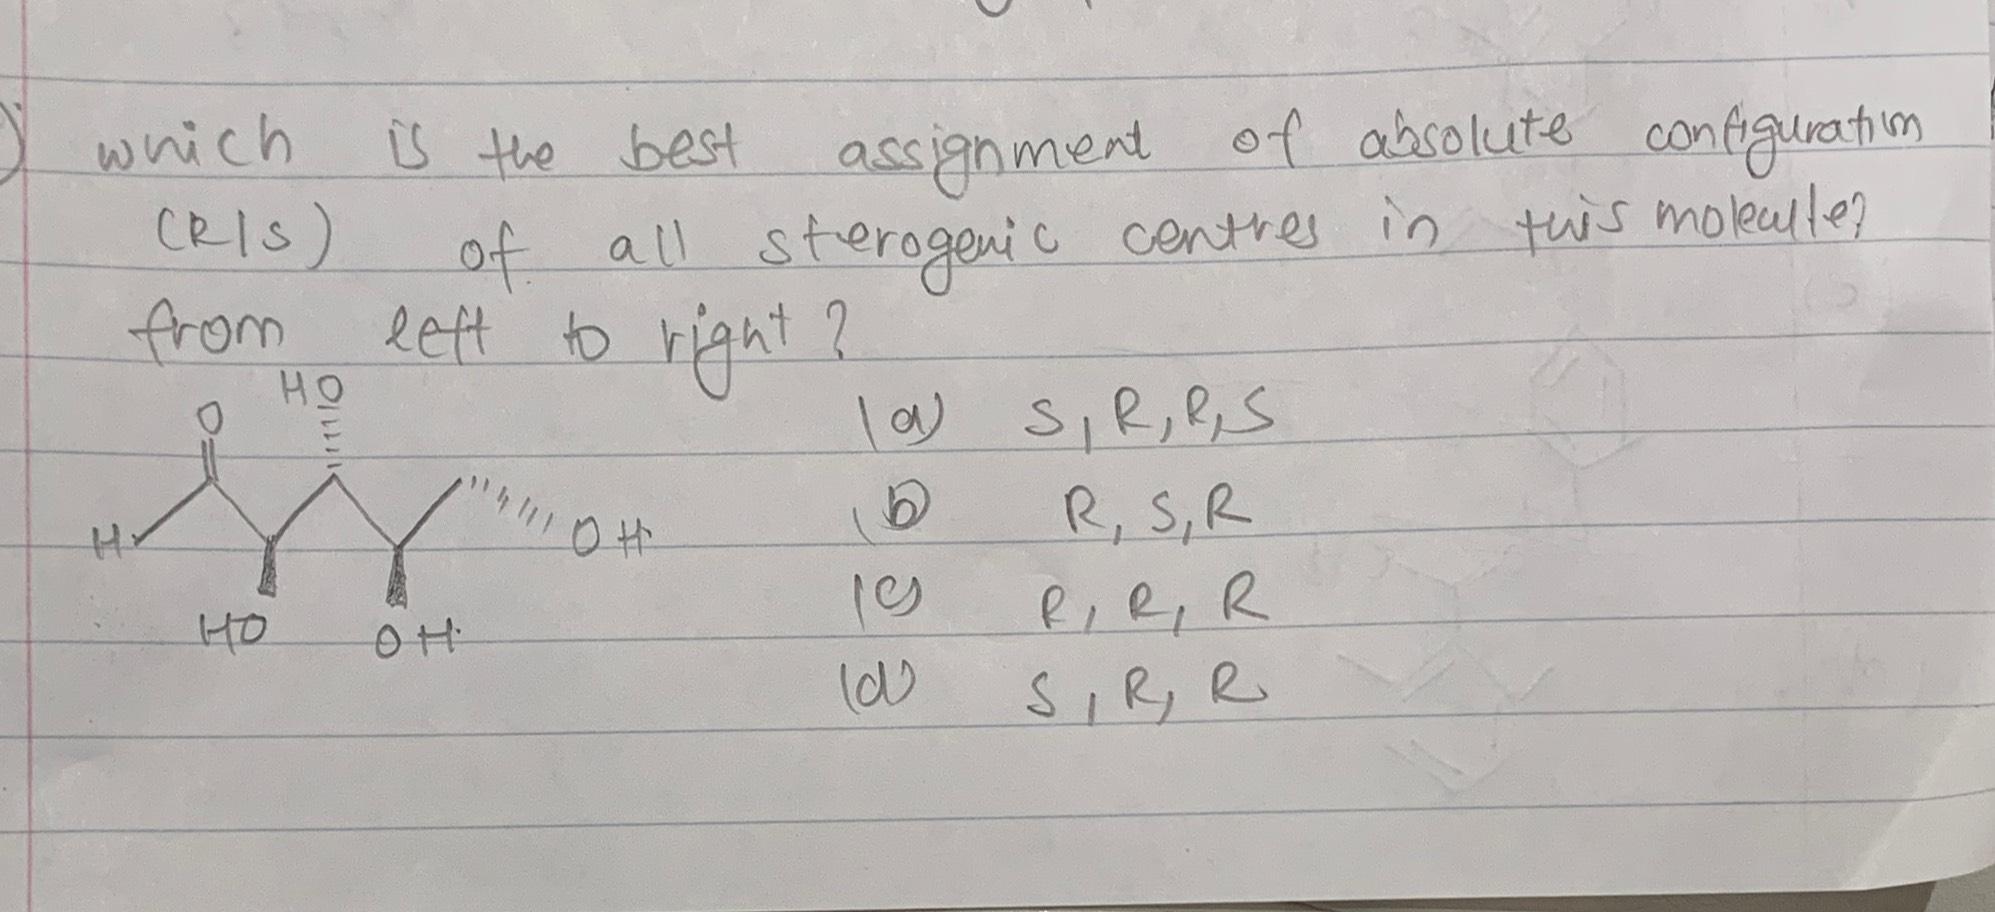 which is the best assignment of absolute configuration
(R/S) of all sterogenic centres in this molecule?
from left to right?
HO
O
H
OH
HO
OH
(a) S, R, R, S
(b) R, S, R
(c) R, R, R
(d) S, R, R